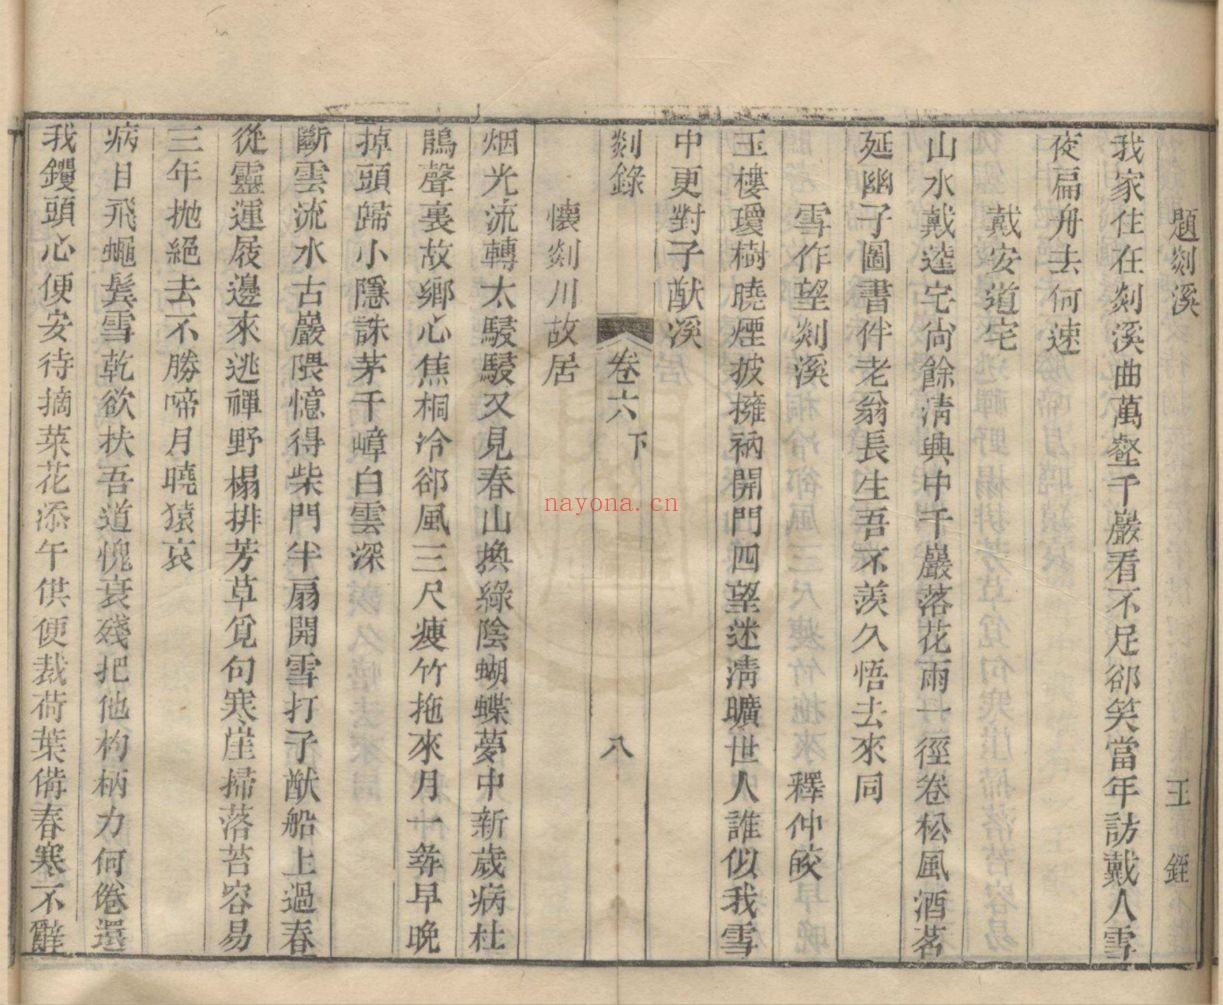 題剡溪 王銍
我家住在剡溪曲萬壑千巖看不足郤笑當年訪戴人雪
夜扁舟去何速
戴安道宅
山水戴逵宅尚餘清興中千巖落花雨一徑卷松風酒茗
延幽子圖書伴老翁長生吾不羨久悟去來同
雪作望剡溪 釋仲皎
玉樓瓊樹曉煙披擁衲開門四望迷清曠世人誰似我雪
中更對子猷溪
剡錄 卷六下 八
懷剡川故居
烟光流轉太駸駸又見春山換綠陰蝴蝶夢中新歲病杜
鵑聲裏故鄉心焦桐冷郤風三尺瘦竹拖來月一尋早晚
掉頭歸小隱誅茅千嶂白雲深
斷雲流水古巖隈憶得柴門半扇開雪打子猷船上過春
從靈運屐邊來逃禪野榻排芳草覓句寒崖掃落苔容易
三年抛絕去不勝啼月曉猿哀
病日飛蠅鬂雪乾欲扶吾道愧衰殘把他杓柄力何倦還
我钁頭心便安待摘菜花添午供便裁荷葉備春寒不辭
nayona.cn